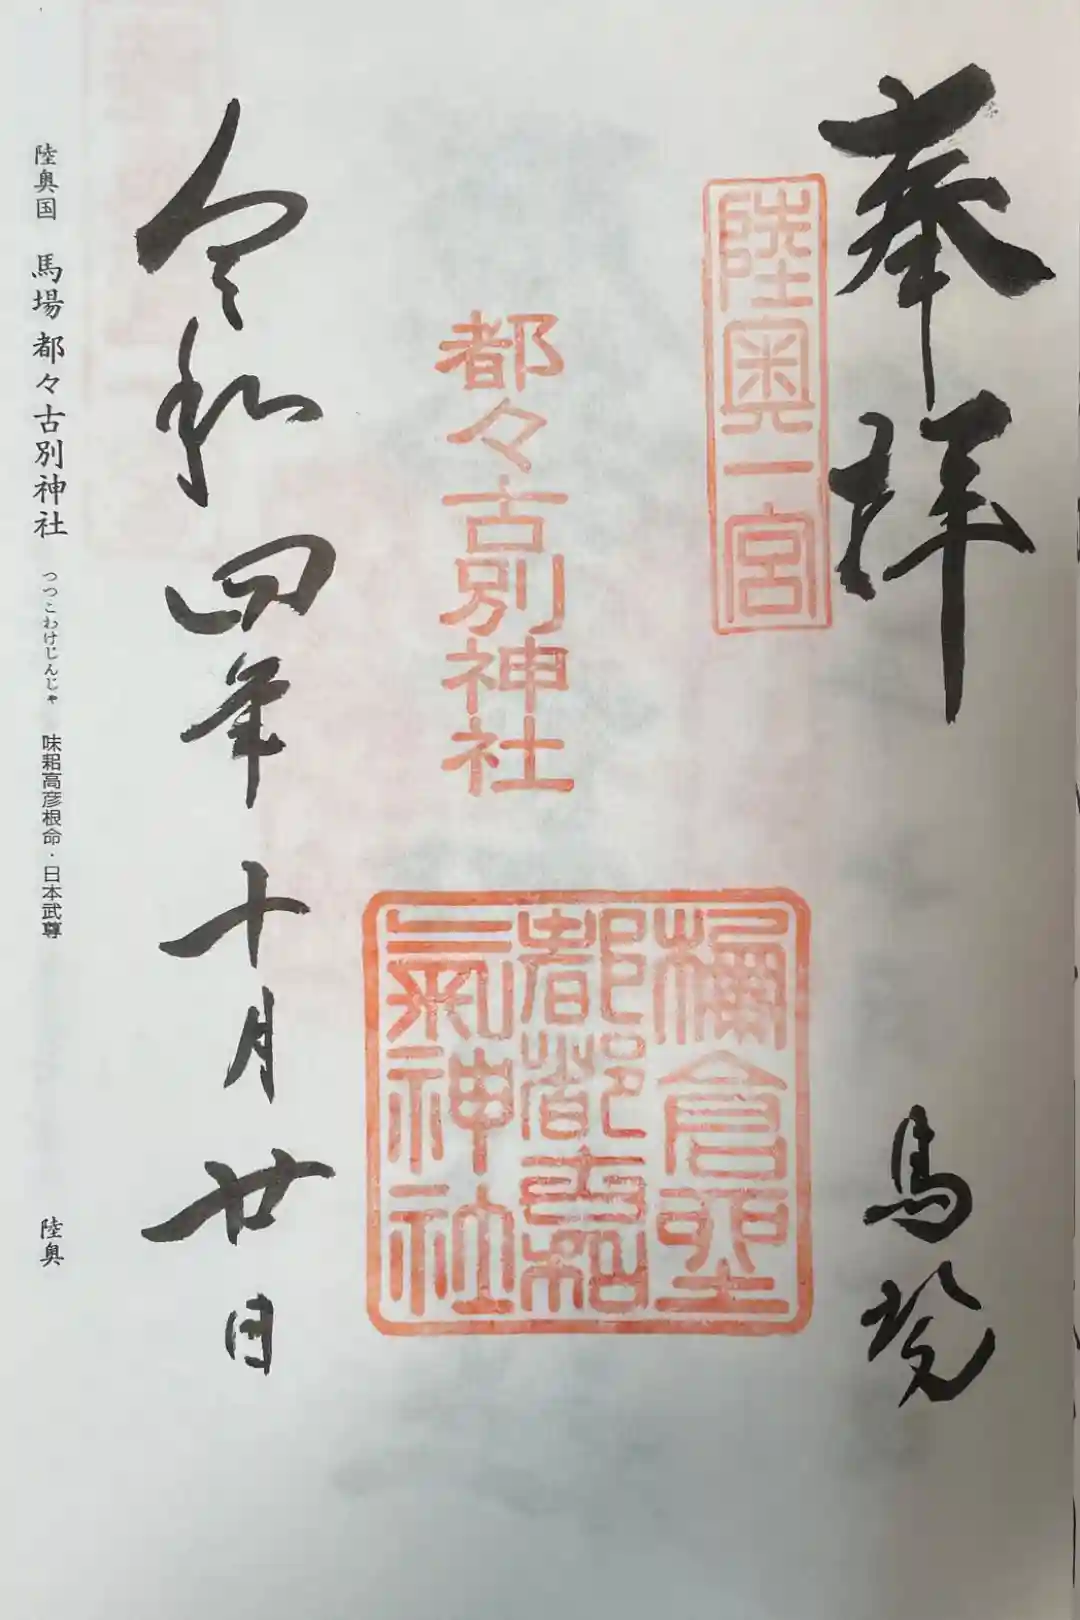 奉拝
馬場
陸奥一宮
都々古別神社
棚倉聖
都都古和
氣神社
令和四年十月廿日
陸奥国 馬場都々古別神社 つつこわけじんじゃ 味耜高彦根命・日本武尊 陸奥